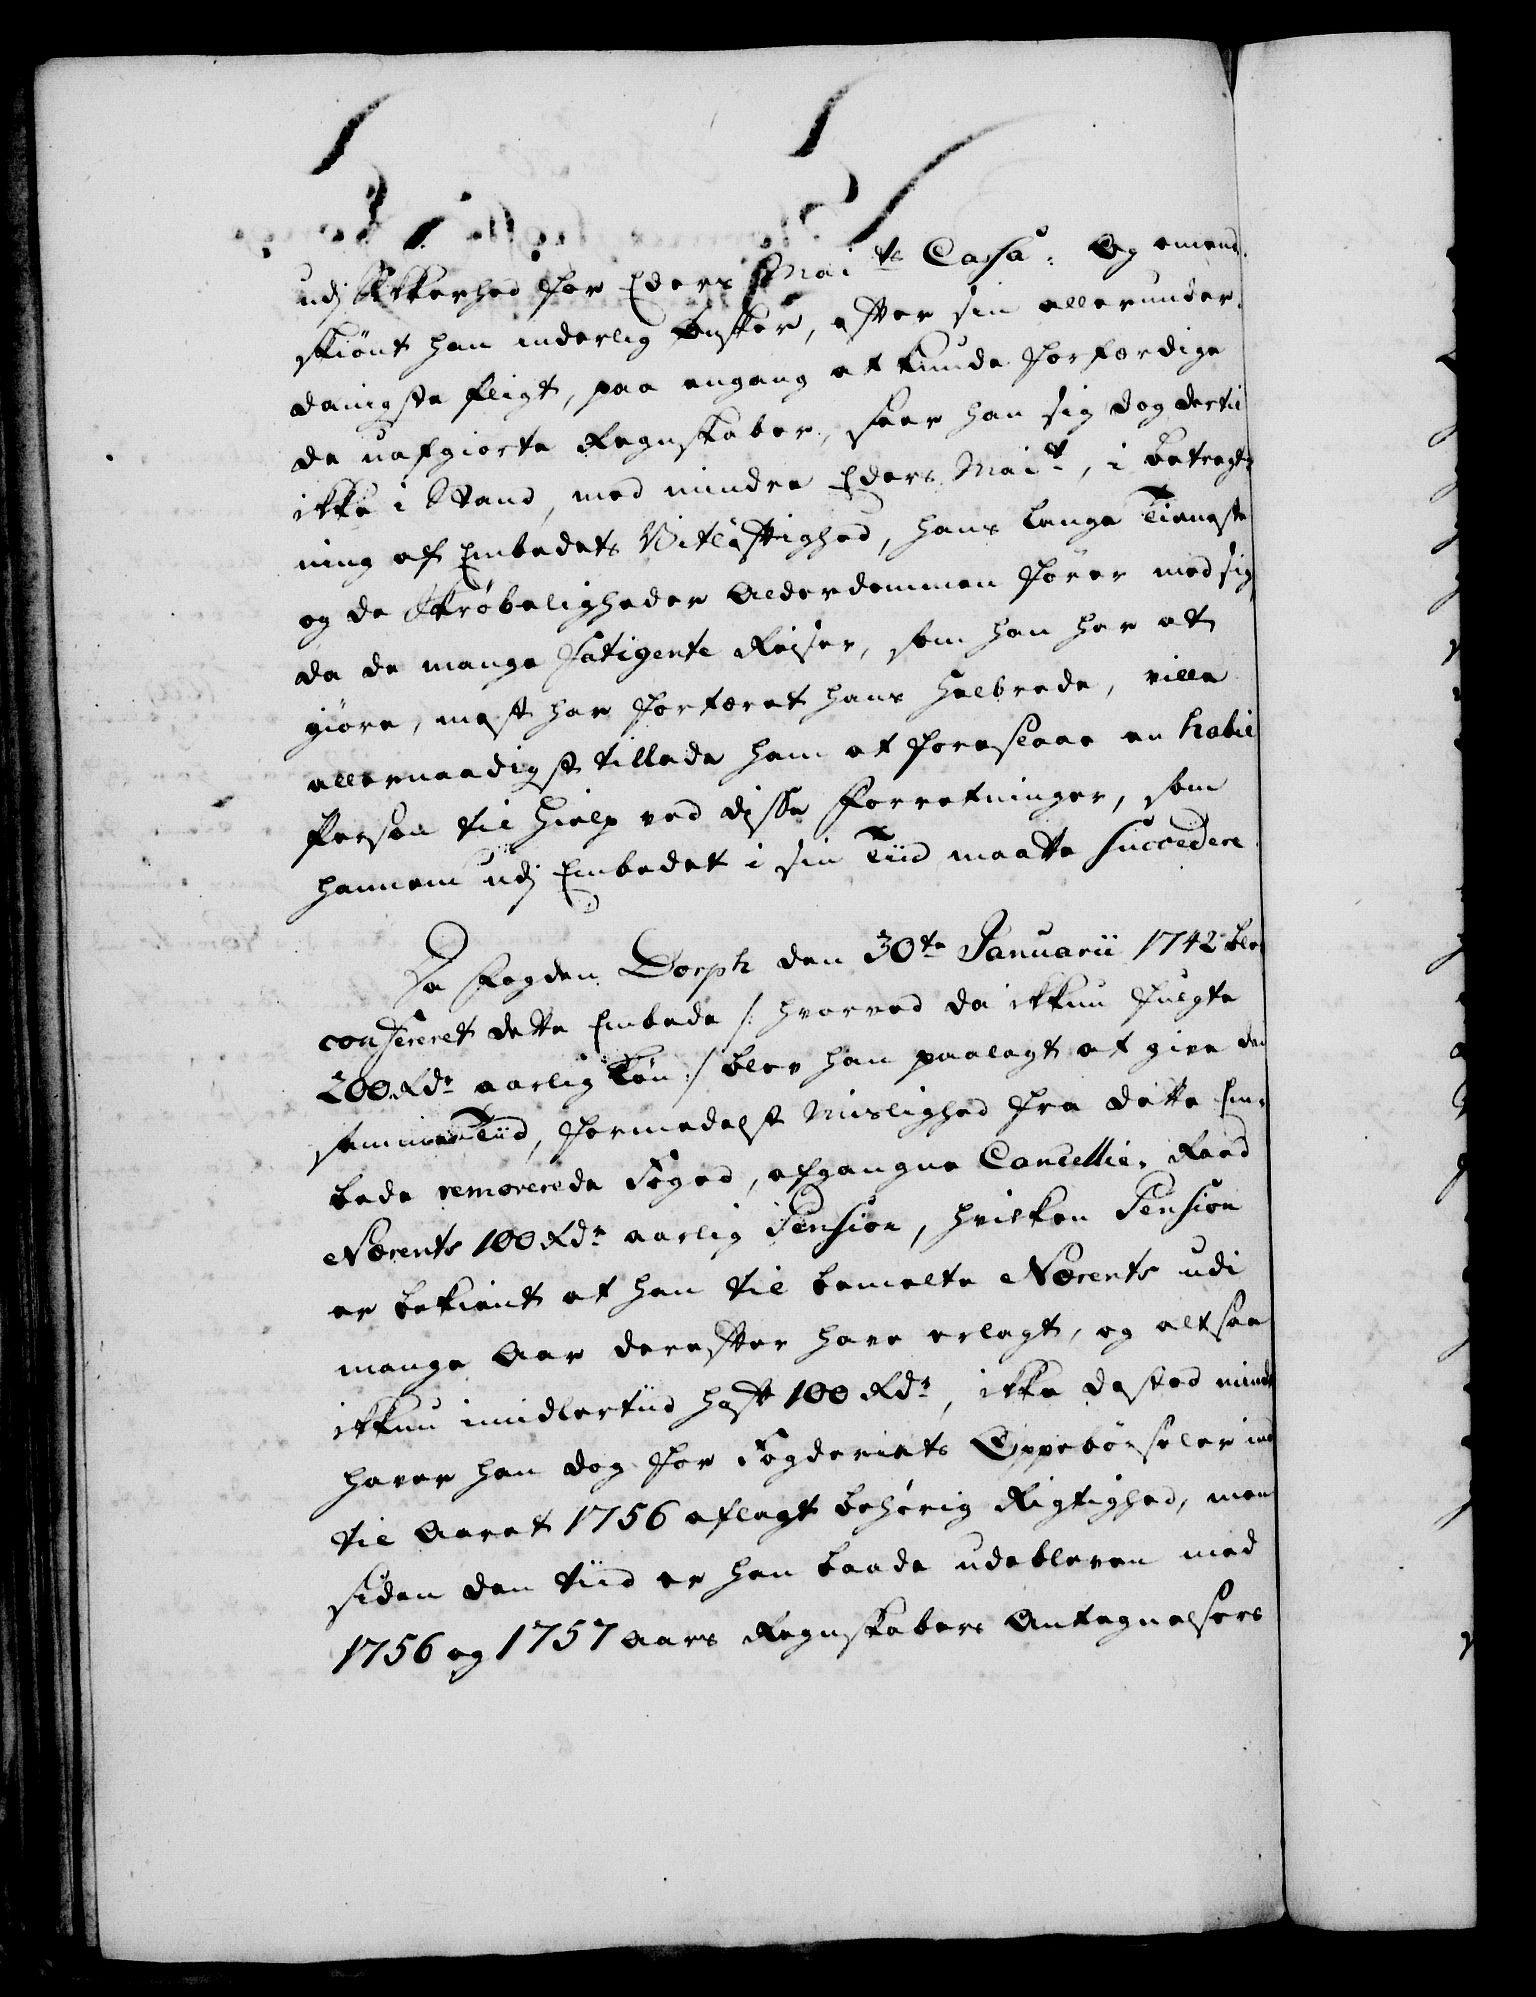 udj Sikkerhed for Eders Mai.ts Cassa: Og omend-
skiönt han inderlig önsker, efter sin allerunder-
danigste Pligt, paa engang at kunde forfærdige
de uafgiorte Regnskaber, seer han sig dog dertil
ikke i Stand, med mindre Eders Mai.t, i betragt-
ning af Embedets Vitløftighed, hans lange Tieneste
og de Skröbeligheder Alderdommen förer med sig,
da de mange fatigente Reiser, som han har at
giöre, mest har fortæret hans Helbrede, ville
allernaadigst tillade ham at foreslaae en habil
Person til Hielp ved disse Forretninger, som
hannem udj Embedet i sin Tiid maatte succedere.
Da Fogden Dorph den 30te Januarii 1742 blev
confereret dette Embede /: hvorved da ikkun fulgte
200 Rdr aarlig Lön :/ blev han paalagt at give den
samme Tiid, formedelst Mislighed fra dette Em-
bede removerede Foged, afgangne Cancellie-Raad
Nørents 100 Rdr aarlig Pension, hvilken Pension
er bekient at han til bemelte Nørents udi
mange Aar derefter have erlagt, og altsaa
ikkun imidlertiid haft 100 Rdr, ikke desto mindre
haver han dog for Fogderiets Oppebörseler ind
til Aaret 1756 aflagt behörig Rigtighed, men
siden den tiid er han baade udebleven med
1756 og 1757 Aars Regnskabers Antegnelsers